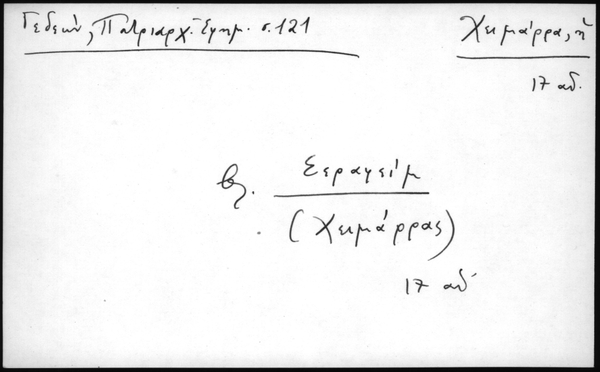 Γεδεών, Πατριαρχ. Εφημ. σ. 121
Χειμάρρα, ἡ
17 αἰ.
βλ. Σεραφείμ
(Χειμάρρας)
17 αἰ.